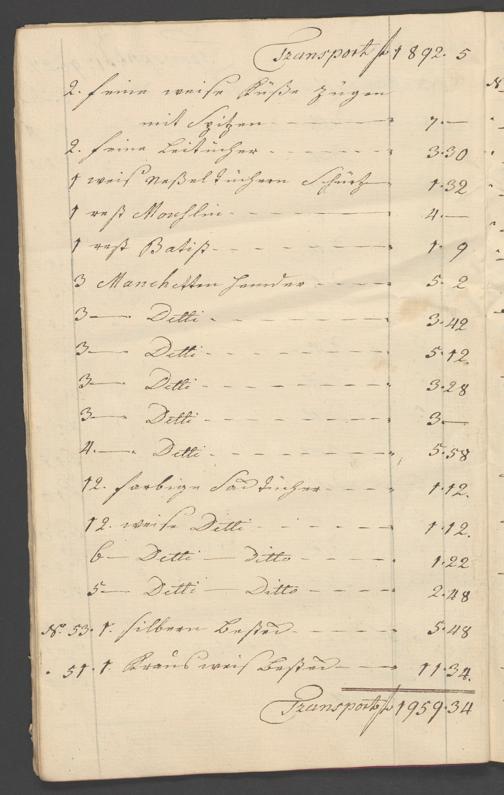 Transport f 1892. 5
2. feine weise Küße zügen
mit Spitzen 7.—
2. feine Leitücher 3.30
1 weis Neßeltüchern Schürtz 1.32
1 rest Mouhlin 4.—
1 rest Batist 1. 9
3 Manchetten hemder 5. 2
3 — Detti 3.42
3 — Detti 5.12
3 — Detti 3.28
3 — Detti 3 —
4. — Detti 5.58
12. farbige Sactücher 1.12.
12. weise Detti 1.12.
6 — Detti — ditto 1.22
5 — Detti — Ditto 2.48
No. 53. 1. silbern Besteck 5.48
51. 1 weis Besteck 11.34.
Transport f 1959.34